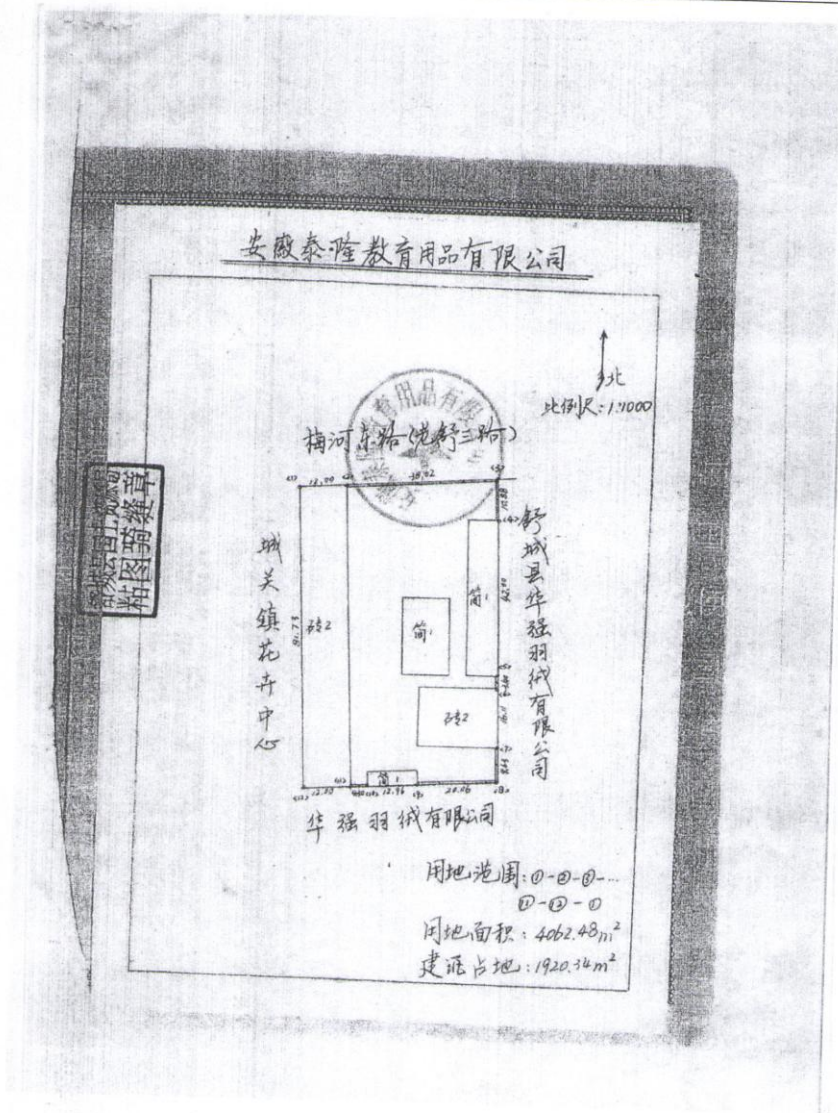 安徽泰隆教育用品有限公司
北
比例尺:1:1000
梅河东路(龙舒三路)
育用品有限
粘图骑缝章
城关镇花卉中心
舒城县华强羽绒有限公司
砖2
简1
简1
砖2
简1
12.96
20.06
华强羽绒有限公司
用地范围:①-②-③-...
⑪-⑫-①
用地面积:4062.48m²
建证占地:1920.34m²